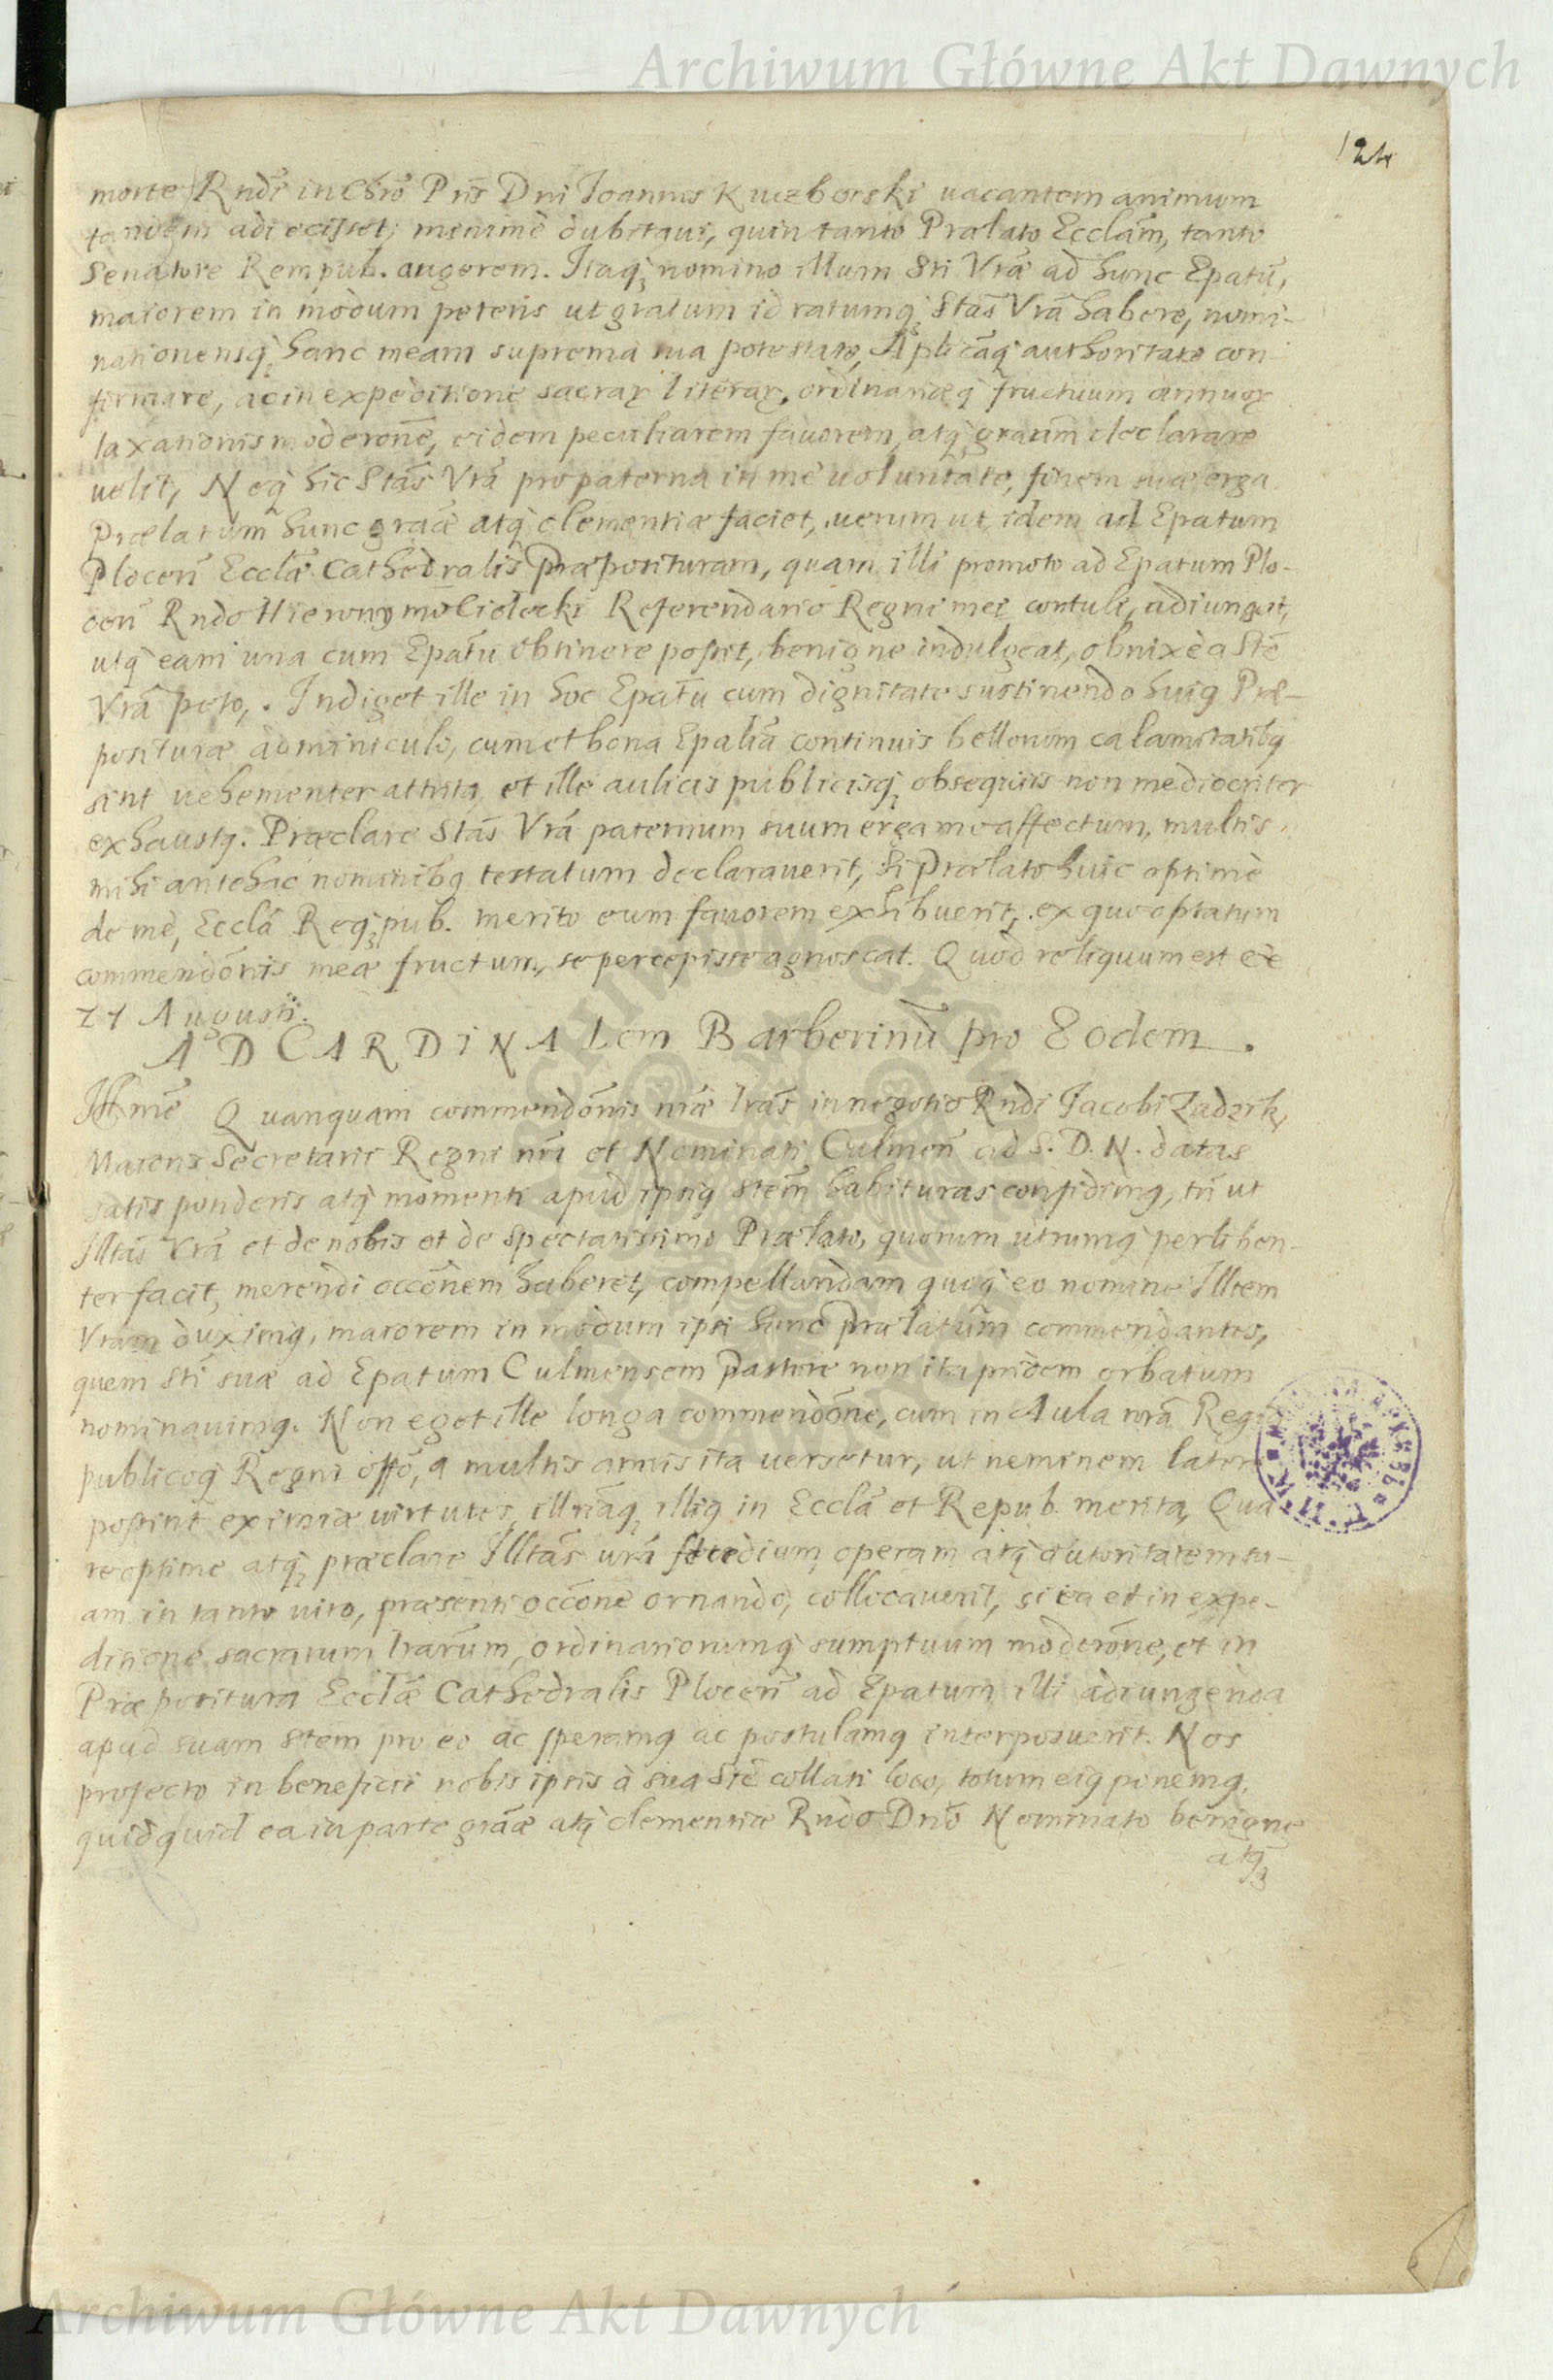 Archiwum Główne Akt Dawnych
124
morte Rndi in Chro Pris Dni Ioannis Kuczborski uacantem animum
tandem adiecisset, minimè dubitaui, quin tanto Prælato Ecclam, tanto
Senatore Rempub. augerem. Itaqȝ nomino illum Sti Vræ ad hunc Epatũ,
maiorem in modum petens ut gratum id ratumqȝ Stas Vra habere, nomi-
nationemqȝ hanc meam suprema sua potestate, Aplicaqȝ authoritate con-
firmare, ac in expeditione sacraꝝ literaꝝ, ordinariæqȝ fructuum annuoꝝ
taxationis moderone, eidem peculiarem fauorem, atqȝ gratiam declarare
uelit, Neqȝ hic Stas Vra pro paterna in me uoluntate, finem suæ erga
Prælatum hunc graæ atqȝ clementiæ faciet, uerum ut idem ad Epatum
Plocen Ecclæ Cathedralis præposituram, quam illi promoto ad Epatum Plo-
cen Rndo Hieronymo Cielecki Referendario Regni mei contuli, adiungat,
utqȝ eam una cum Epatu obtinere possit, benigne indulgeat, obnixè a Ste
Vra peto. Indiget ille in hoc Epatu cum dignitate sustinendo huiꝰ Præ-
posituræ adminiculo, cum et bona Epalia continuis bellorum calamitatibꝰ
sint uehementer attrita, et ille aulicis publicisqȝ obsequiis non mediocriter
exhaustꝰ. Præclare Stas Vra paternum suum erga me affectum, multis
mihi antehac nominibꝰ testatum declarauerit, si Prælato huic optimè
de me, Eccla Reqȝ pub. merito eum fauorem exhibuerit, ex quo optatum
commendonis meæ fructum, se percepisse agnoscat. Quod reliquum est &c
11 Augusti.
AD CARDINALem Barberinũ pro Eodem.
Illme Quanquam commendonis nræ lras in negotio Rndi Iacobi Zadzik,
Maioris Secretarii Regni nri et Nominati Culmen ad S. D. N. datas
satis ponderis atqȝ momenti apud ipsiꝰ Stem habituras confidimꝰ, tn ut
Illtas Vra et de nobis et de spectatissimo Prælato, quorum utrumqȝ perliben-
ter facit, merendi occonem haberet, compellandam quoqȝ eo nomine Illtem
Vram duximꝰ, maiorem in modum ipsi hunc prælatum commendantes,
quem Sti suæ ad Epatum Culmensem pastore non ita pridem orbatum
nominauimꝰ. Non eget ille longa commendone, cum in Aula nra Regia
publicoqȝ Regni offo, a multis annis ita uersetur, ut neminem latere
possint eximiæ uirtutes, illiꝰ in Eccla et Repub. merita, Qua
re optime atqȝ præclare Illtas ura studium, operam atqȝ autoritatem su-
am in tanto uiro, præsenti occone ornando, collocauerit, si ea et in expe-
ditione sacrarum lrarum, ordinariorumqȝ sumptuum moderone, et in
Præpositura Ecclæ Cathedralis Plocen ad Epatum illi adiungenda
apud suam Stem pro eo ac speramꝰ ac postulamꝰ interposuerit. Nos
profecto in beneficii nobis ipsis à sua Ste collati loco, totum eiꝰ ponemꝰ,
quidquid ea in parte graæ atqȝ clementiæ Rndo Dno Nominato benigne
atqȝ
Archiwum Główne Akt Dawnych